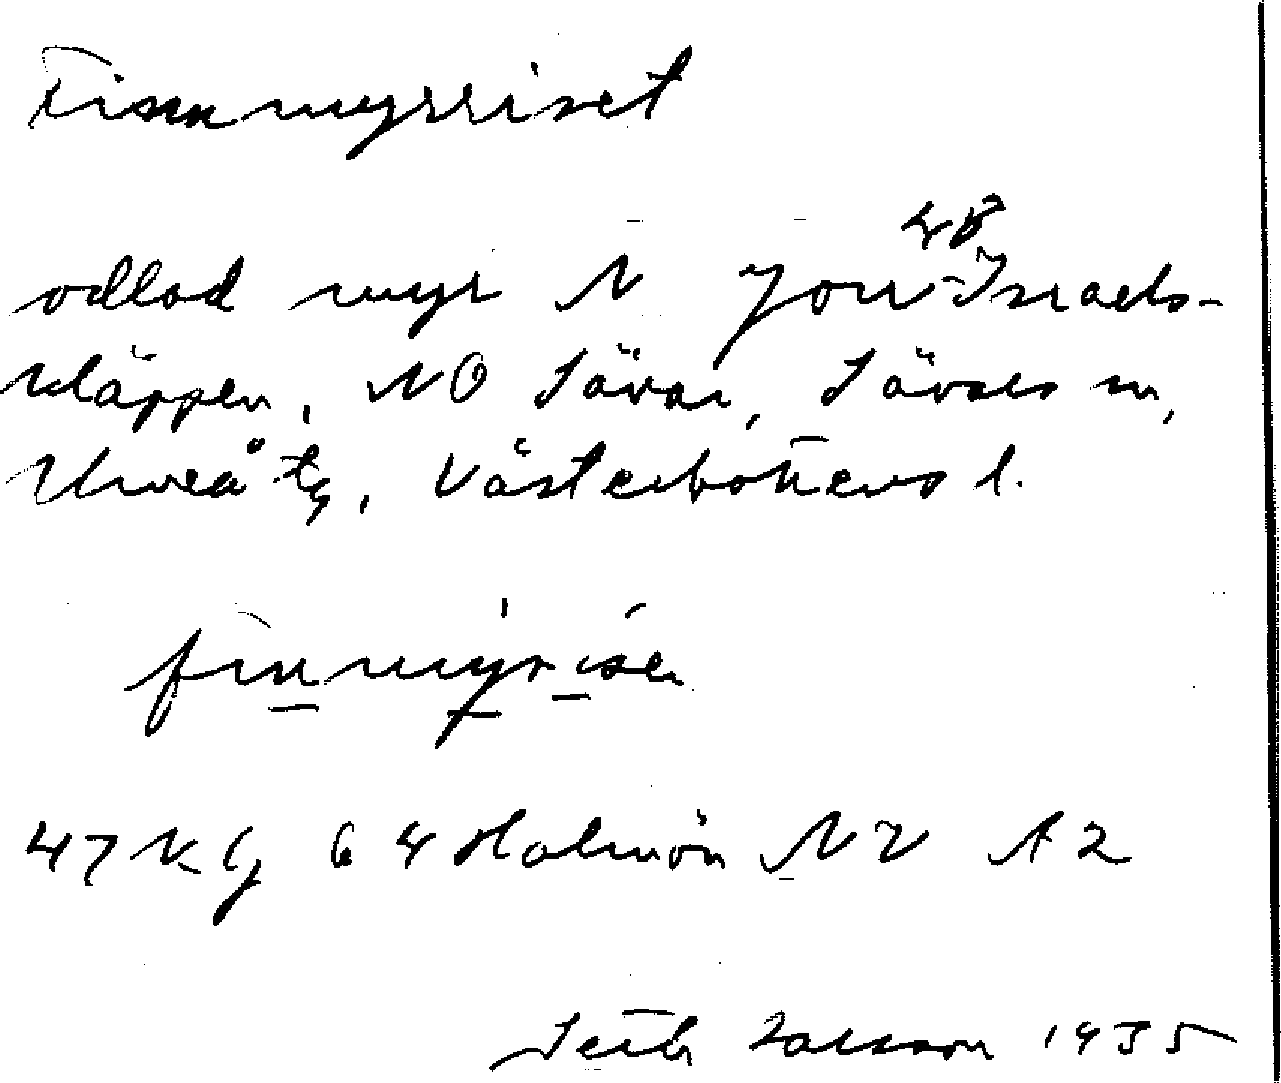 Finnmyrriset
48
odlad myr N Jon-Israels-
kläppen, NO Sävar, Sävars sn,
Umeå tg, Västerbottens l.
finmyrise
47 KG 64 Holmön NV A2
Seth Larsson 1935